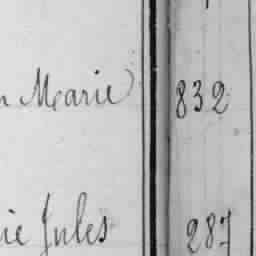 Marie 832
Jules 287